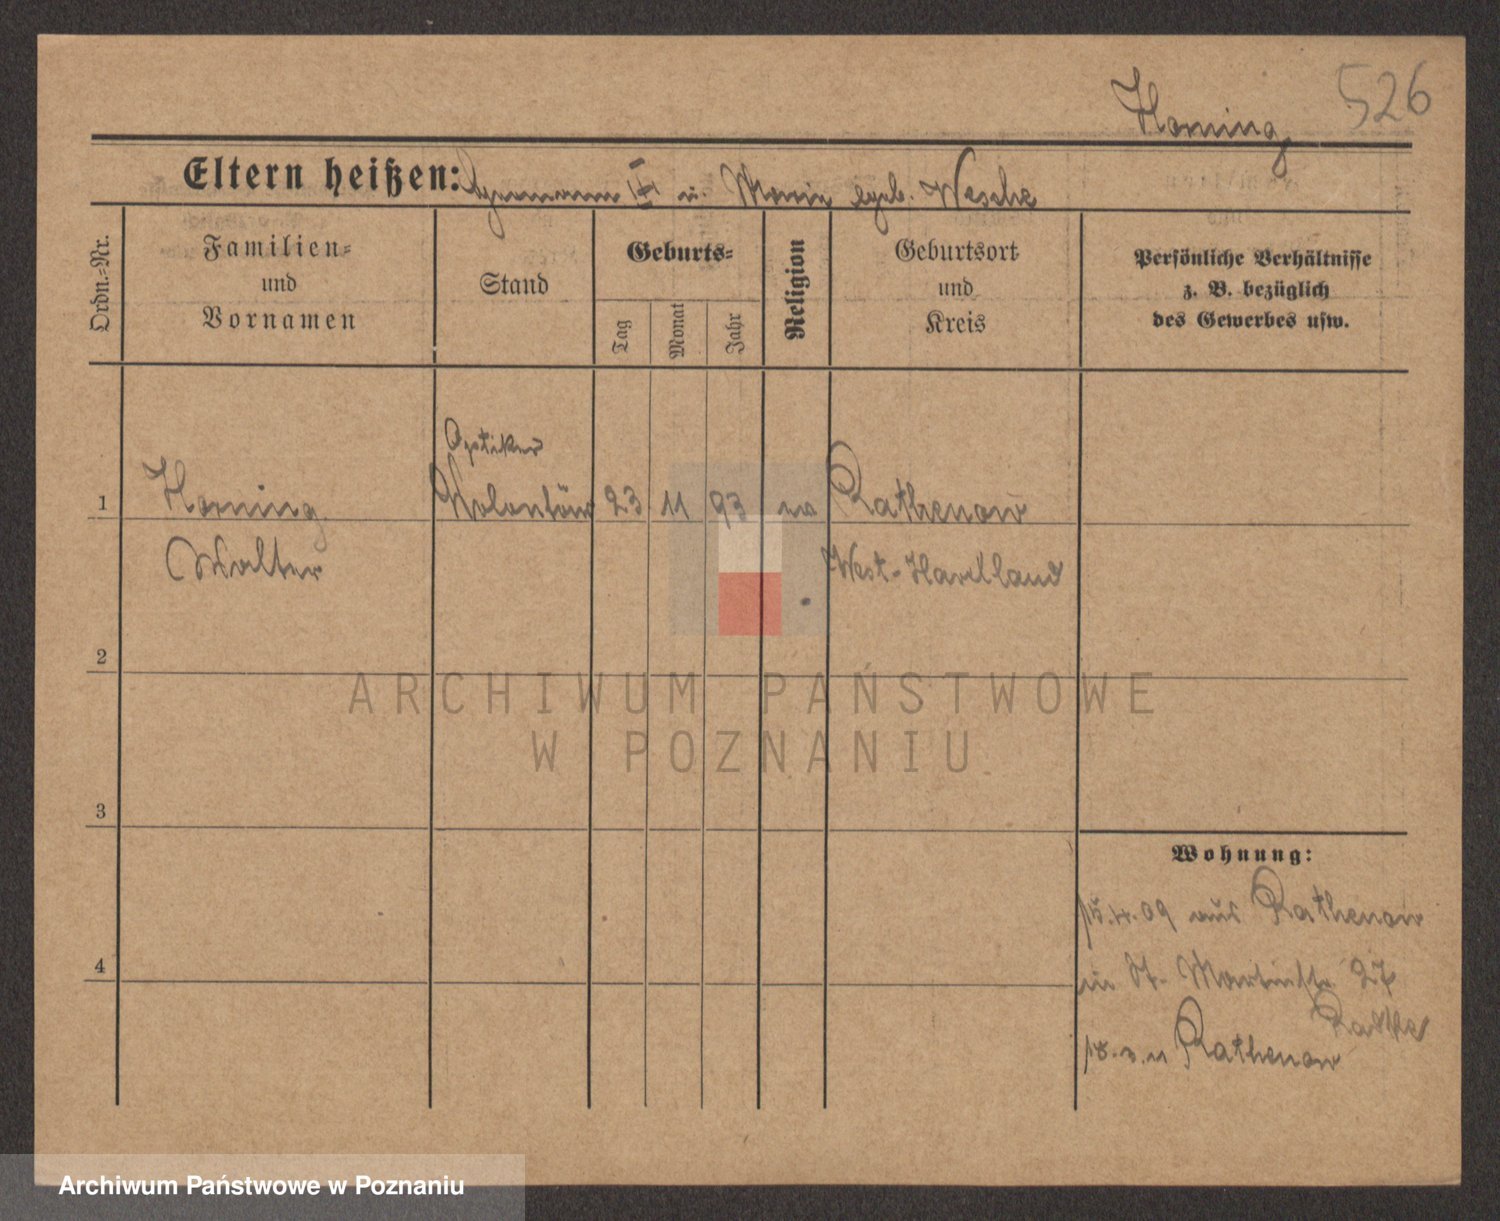 526
Horning
Eltern heißen: Hermann II u. Marie geb. Wesche
Ordn.-Nr.
Familien-
und
Vornamen
Stand
Geburts-
Tag
Monat
Jahr
Religion
Geburtsort
und
Kreis
Persönliche Verhältnisse
z. B. bezüglich
des Gewerbes usw.
Optiker
1 Horning Volontär 23 11 93 Rathenow
Walter West-Havelland
2
3
4
Wohnung:
09 aus Rathenow
in St. Martinstr. 27
Rathenow
ARCHIWUM PAŃSTWOWE
W POZNANIU
Archiwum Państwowe w Poznaniu